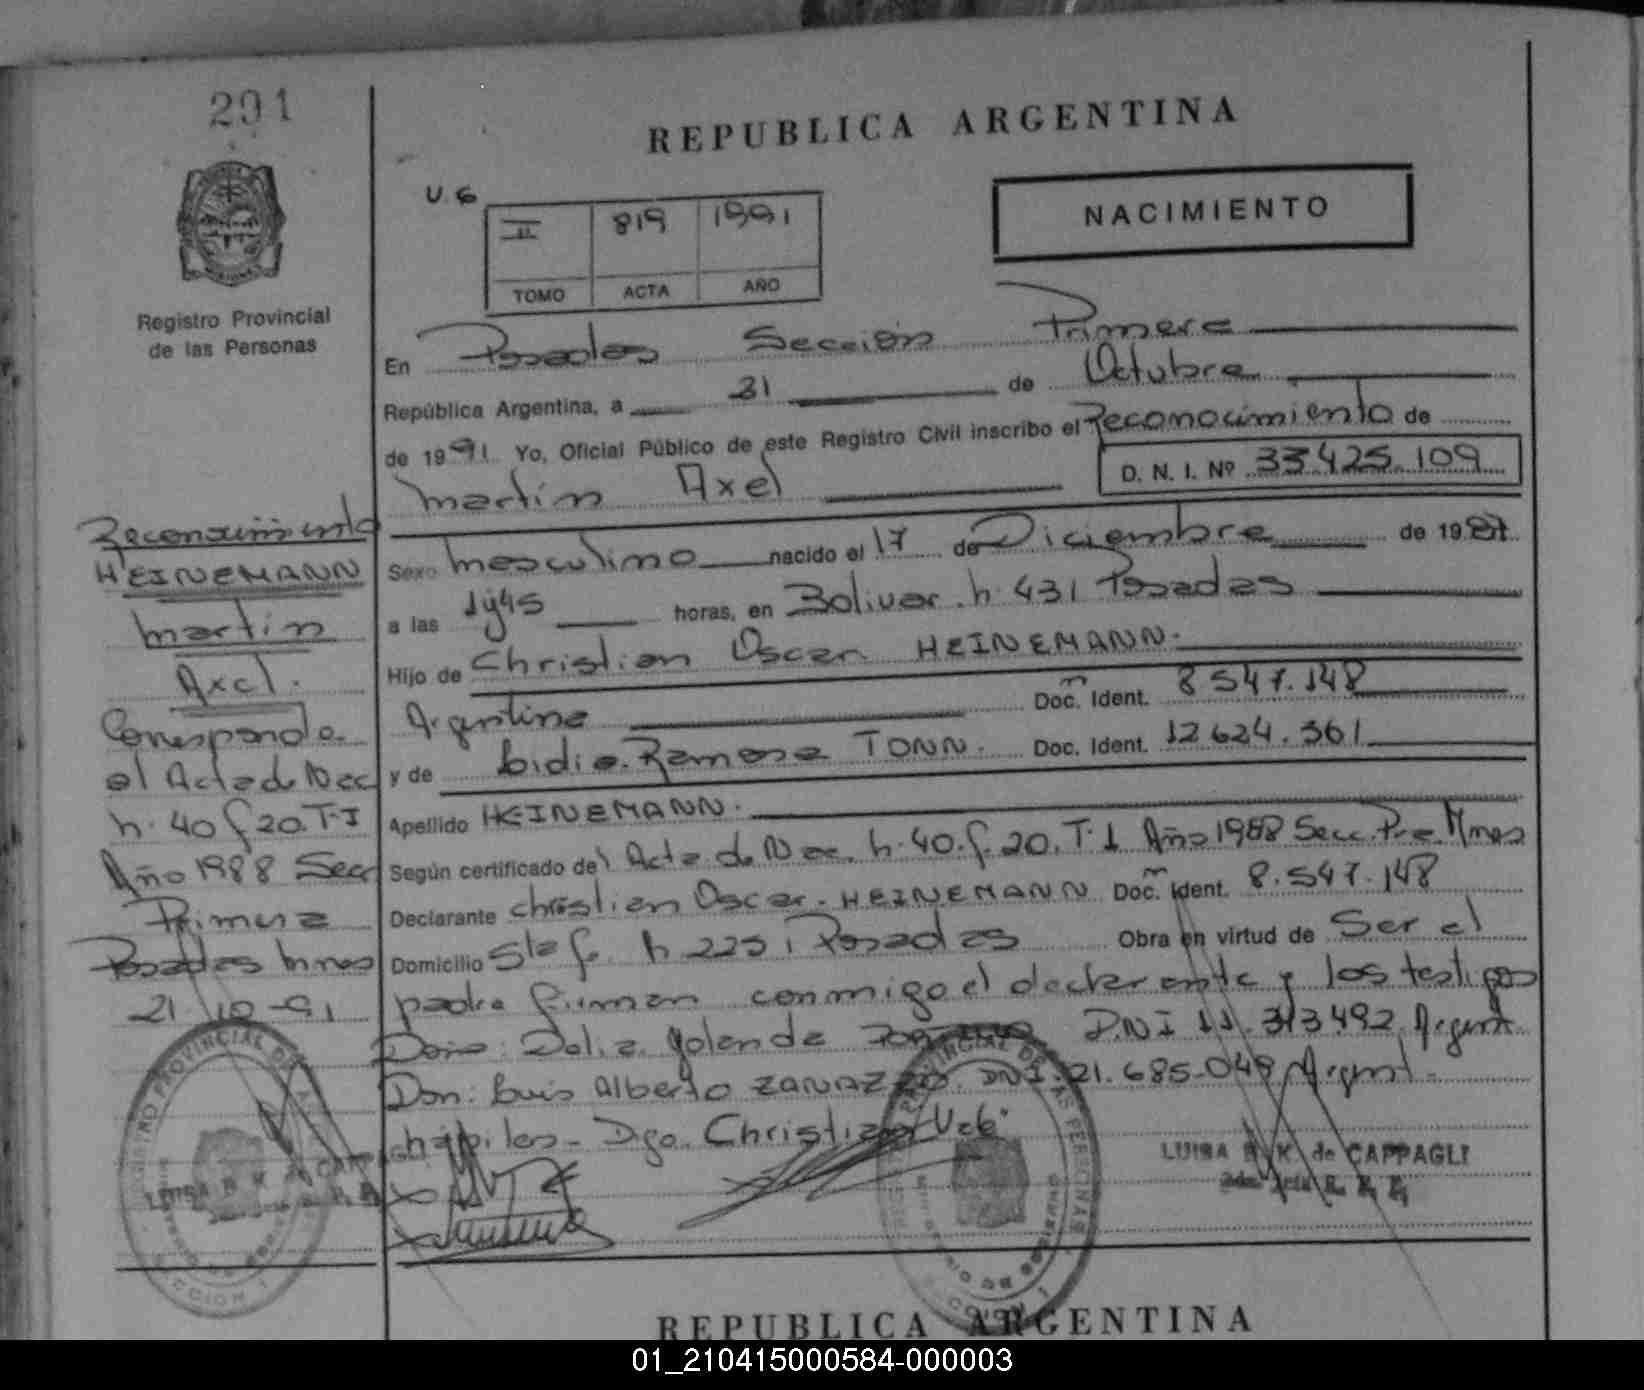 291
REPUBLICA ARGENTINA
U. 6
II 819 1991
TOMO ACTA AÑO
NACIMIENTO
Registro Provincial
de las Personas
En Posadas Sección Primera
República Argentina, a 31 de Octubre
de 1991. Yo, Oficial Público de este Registro Civil inscribo el Reconocimiento de
Martín Axel D. N. I. Nº 33.425.109
Sexo Masculino nacido el 17 de Diciembre de 1987
a las 1y45 horas, en Bolivar. n. 431 Posadas
Hijo de Christian Oscar HEINEMANN.
Argentina Doc. Ident. 8547.148
y de Lidia Ramona TONN. Doc. Ident. 12624.361
Apellido HEINEMANN.
Según certificado del Acta de Nac. n. 40. f. 20. T. I Año 1988 Secc. Pra. Mnes
Declarante Christian Oscar. HEINEMANN Doc. Ident. 8.547.148
Domicilio Sta fe n 2251 Posadas Obra en virtud de Ser el
padre firman conmigo el declarante y los testigos
Doña: Delia Yolanda D.N.I 11.313.492. Argent.
Don: Luis Alberto ZARAZZO. DNI. 21.685.049 Argent.
hábiles. Dgo. Christian Vale.
LUISA B. K. de CAPPAGLI
Reconocimiento
HEINEMANN
Martín
Axel.
Corresponde
al Acta de Nac
n. 40 f 20. T. I
Año 1988 Secc
Primera
Posadas Mnes
21.10-91
REGISTRO PROVINCIAL DE LAS PERSONAS
LUISA B K de CAPPAGLI
REPUBLICA ARGENTINA
01_210415000584-000003